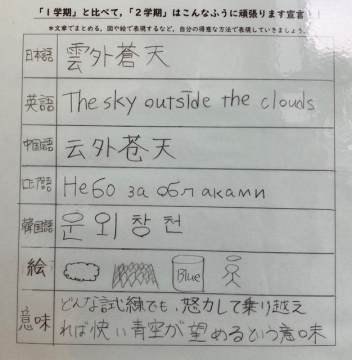 「1学期」と比べて,「2学期」はこんなふうに頑張ります宣言!!
*文章でまとめる,図や絵で表現するなど,自分の得意な方法で表現していきましょう。
日本語 雲外蒼天
英語 The sky outside the clouds
中国語 云外苍天
ロシア語 Небо за облаками
韓国語 운외창천
絵 Blue
意味 どんな試練でも、努力して乗り越え
れば快い青空が望めるという意味